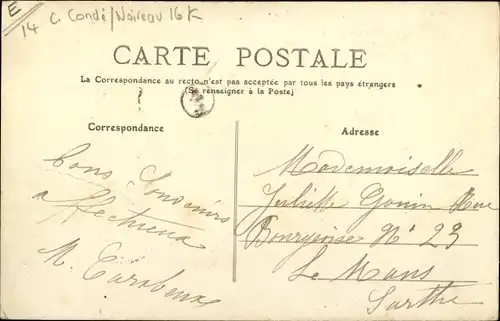 E
14 C. Condé/Noireau 16K
CARTE POSTALE
La Correspondance au recto n'est pas acceptée par tous les pays étrangers
(Se renseigner à la Poste)
Correspondance
Adresse
Bons Souvenirs
affectueux
M.
Mademoiselle
Juliette Gouin Rue
Bourgeoise N° 23
Le Mans
Sarthe